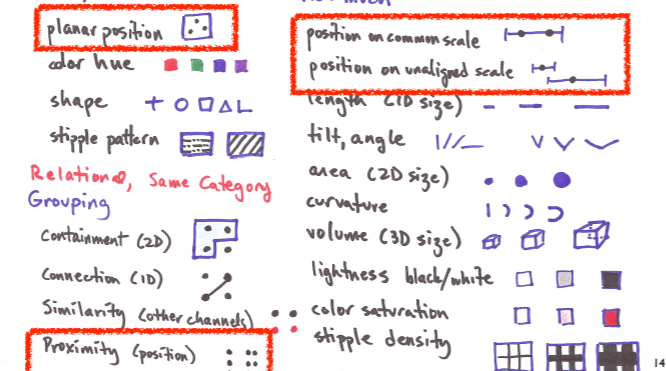 planar position
color hue
shape
stipple pattern
Relational, Same Category
Grouping
Containment (2D)
Connection (1D)
Similarity (other channels)
Proximity (position)
position on common scale
position on unaligned scale
length (1D size)
tilt, angle
area (2D size)
curvature
volume (3D size)
lightness black/white
color saturation
stipple density
14